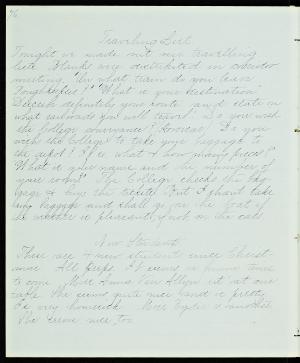 46
Traveling List
Tonight we made out our travelling
lists. Blanks were distributed in corridor
meeting. "On what train do you leave
Poughkeepsie?" "What is your destination?
Describe definitely your route and state on
what railroads you will travel. Do you wish
the College conveyance? Horsecar? Do you
wish the College to take your baggage to
the depot? If so, what & how many pieces?
What is your name and the number of
your room? The College checks the bag-
gage & buys the tickets. But I shant take
any baggage and shall go on the boat if
the weather is pleasant, if not on the cars
New Students
There are 4 new students since Christ-
mas. All preps. It seems a funny time
to come. Miss Annie Van is at our
table. She seems quite nice and is pretty
& very homesick. Miss is another
She seems nice, too.